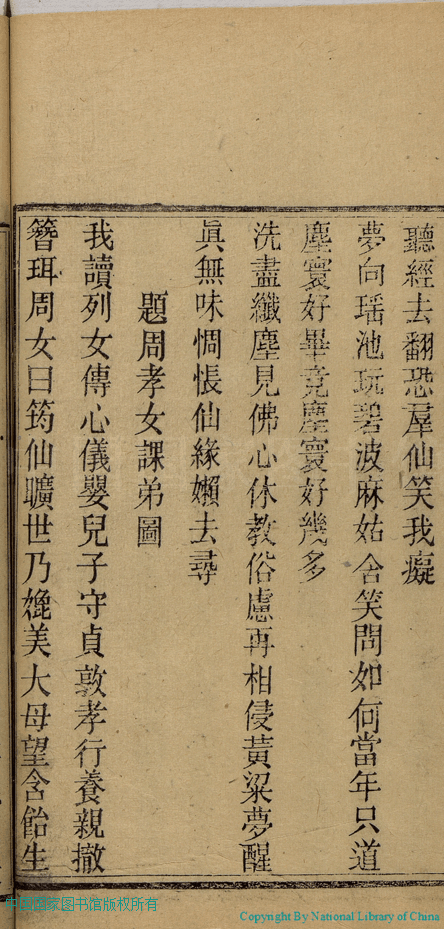 聽經去翻恐羣仙笑我癡
夢向瑤池玩碧波麻姑含笑問如何當年只道
塵寰好畢竟塵寰好幾多
洗盡纖塵見佛心休教俗慮再相侵黃粱夢醒
眞無味惆悵仙緣嬾去尋
題周孝女課弟圖
我讀列女傳心儀嬰兒子守貞敦孝行養親撤
簪珥周女曰筠仙曠世乃媲美大母望含飴生
中国国家图书馆版权所有
Copyright By National Library of China